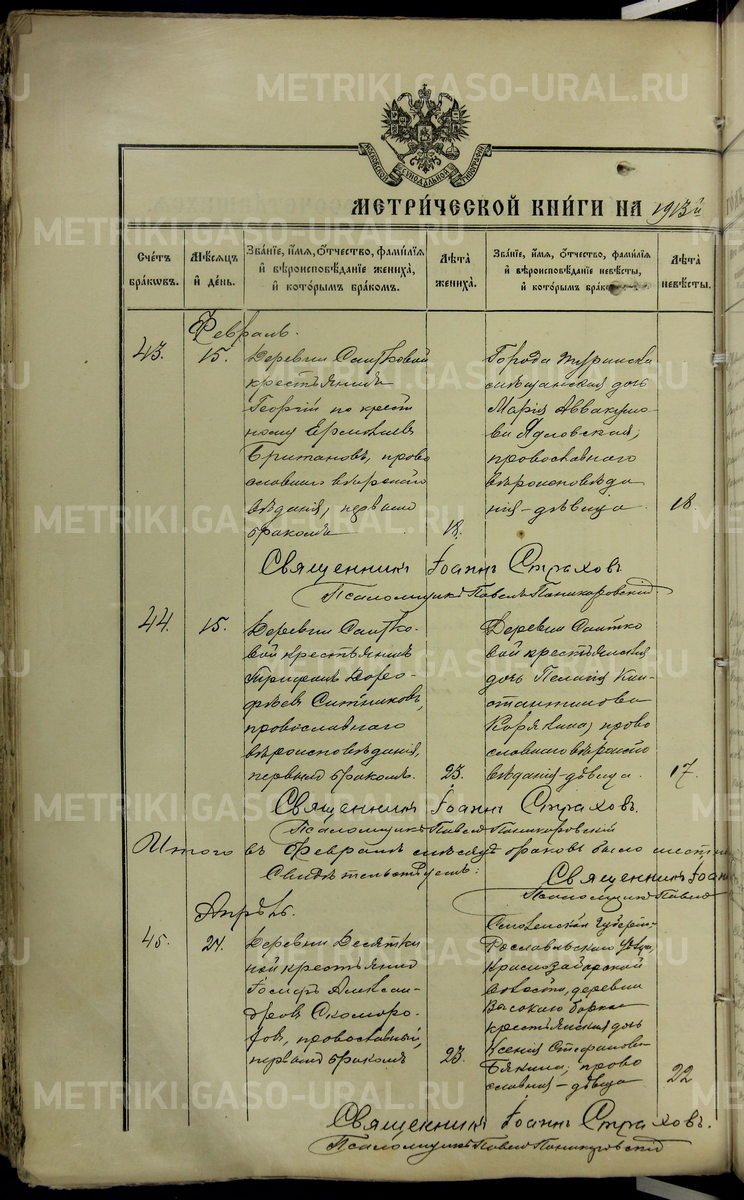 METRIKI.GASO-URAL.RU
МЕТРИ́ЧЕСКОЙ КНИ́ГИ НА 1913й
Сче́тъ бра́кѡвъ.
Мѣ́сяцъ и҆ де́нь.
Зва́нїе, и҆́мѧ, ѻ҆́тчество, фами́лїѧ и҆ вѣроисповѣ́данїе жениха̀, и҆ кото́рымъ бра́комъ.
Лѣ́та жениха̀.
Зва́нїе, и҆́мѧ, ѻ҆́тчество, фами́лїѧ и҆ вѣроисповѣ́данїе невѣ́сты, и҆ кото́рымъ бра́комъ.
Лѣ́та невѣ́сты.
Февраль.
43.
15.
Деревни Саитковой
крестьянинъ
Георгій по крест
ному Ермолаевъ
Британовъ, право
славнаго вѣроиспо
вѣданія, первымъ
бракомъ
18.
Города Туринска
мѣщанская дочь
Марія Аввакумо-
ва Ядловская,
православнаго
вѣроисповѣда
нія - дѣвица
18.
Священникъ Іоаннъ Страховъ
Псаломщикъ Павелъ Паникоровскій
44.
15.
Деревни Саитко-
вой крестьянинъ
Трифонъ Доро-
фѣевъ Ситниковъ,
православнаго
вѣроисповѣданія,
первымъ бракомъ.
23.
Деревни Саитко
вой крестьянская
дочь Пелагія Кон-
стантинова
Корякина, право
славнаго вѣроиспо
вѣданія - дѣвица.
17.
Священникъ Іоаннъ Страховъ.
Псаломщикъ Павелъ Паникоровскій
Итого въ Февралѣ мѣсяцѣ браковъ было шест
Свидѣтельствуемъ:
Священникъ Іоан
Псаломщикъ Павелъ
Апрѣль.
45.
21.
Деревни Десятки
ной крестьянинъ
Іосифъ Алексан-
дровъ Скоморо-
ховъ, православный,
первымъ бракомъ
23.
Смоленской Губерніи
Рославльскаго уѣзда,
Краснозаборской
волости, деревни
Высокаго Борка
крестьянская дочь
Ксенія Стефанова
Бякина, право
славная - дѣвица
22
Священникъ Іоаннъ Страховъ.
Псаломщикъ Павелъ Паникоровскій